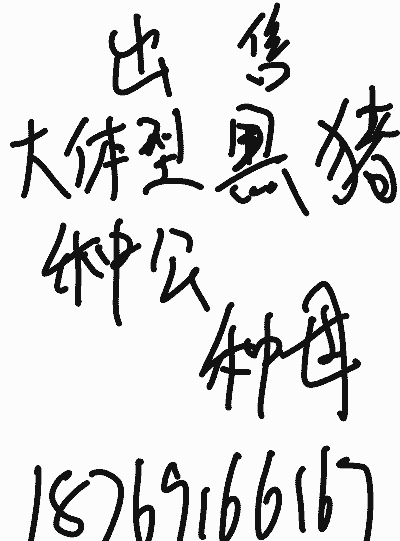 出售
大体型黑猪
种公
种母
18769166167